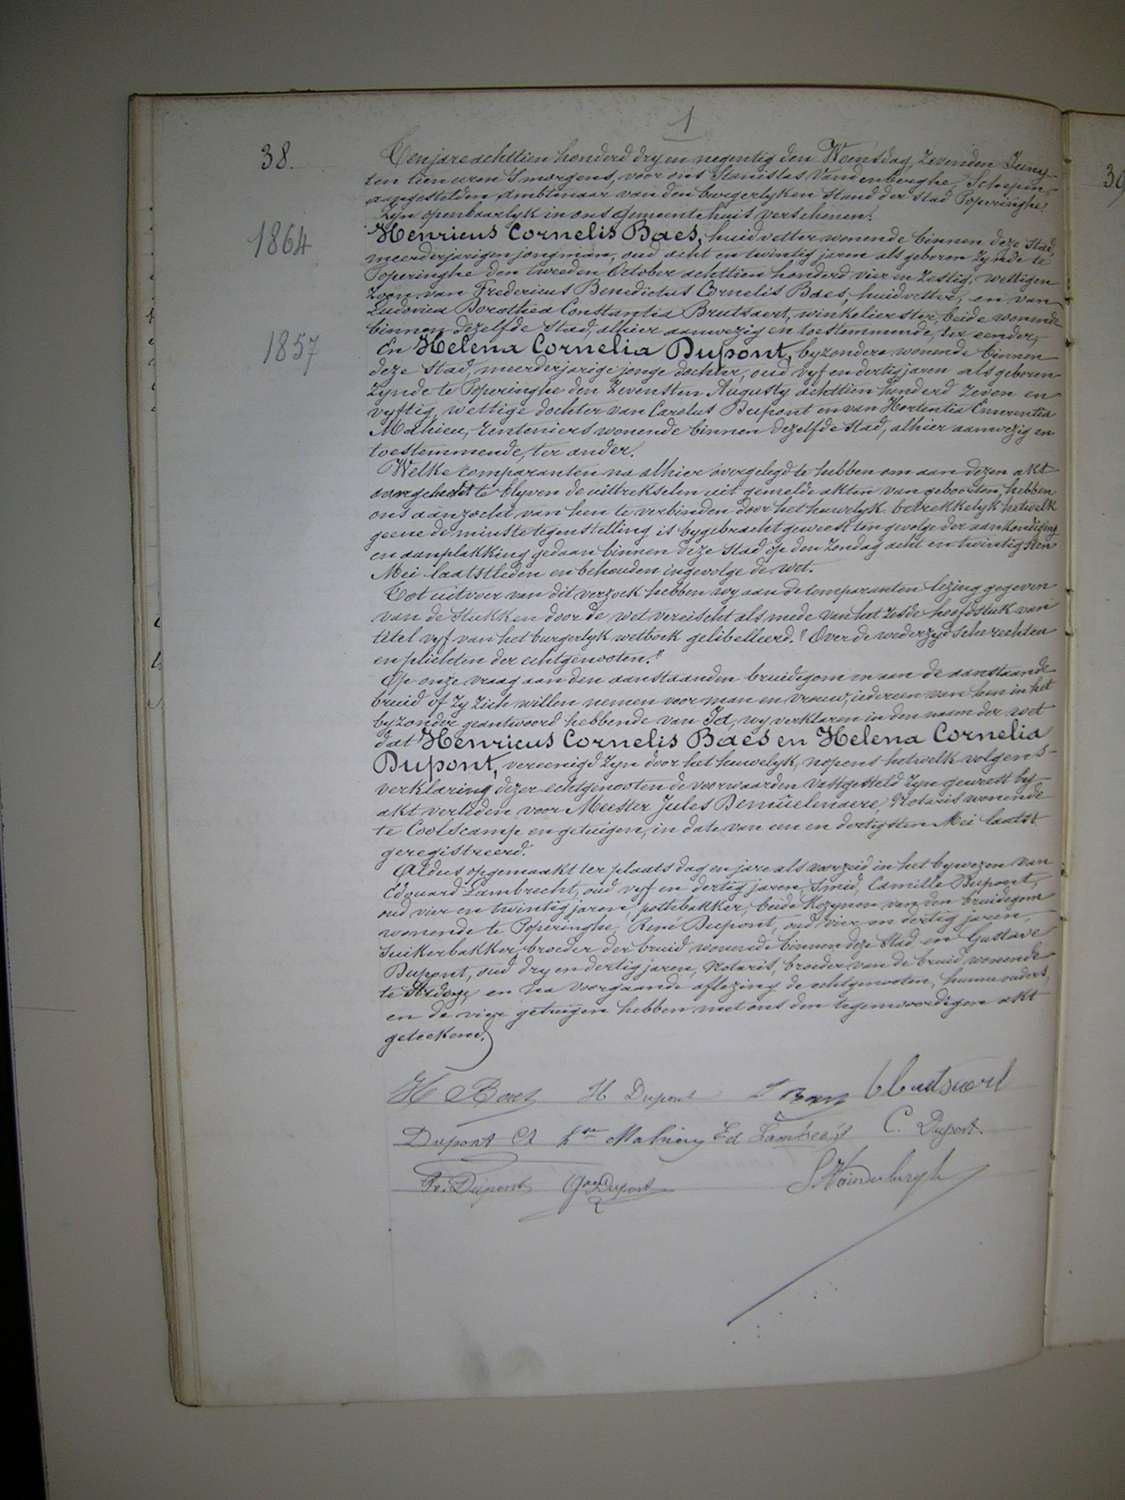 1
38.
Ten jare achttien honderd dry en negentig den Weensdag, Zevenden Juny
ten tien uren 's morgens, voor ons Stanislas Vandenberghe, Schepen,
aangestelden Ambtenaar van den burgerlyken Stand der stad Poperinghe
Zyn openbaarlyk in ons gemeentehuis verschenen:
1864
Henricus Cornelis Baes, huidvetter wonende binnen deze Stad
meerderjarigen jongman, oud acht en twintig jaren als geboren Zynde te
Poperinghe den tweeden October achttien honderd vier en Zestig, wettigen
Zoon van Fredericus Benedictus Cornelis Baes, huidvetter, en van
Ludovica Dorothea Constantia Brutsaert, winkelierster, beide wonende
binnen dezelfde Stad, alhier aanwezig en toestemmende, ter eender,
1857
En Helena Cornelia Dupont, byzondere wonende binnen
deze Stad, meerderjarige jonge dochter, oud vyf en dertig jaren als geboren
Zynde te Poperinghe den Zevensten Augusty achttien honderd Zeven en
vyftig, wettige dochter van Carolus Dupont en van Hortentia Emerentia
Mahieu, renteniers wonende binnen dezelfde Stad, alhier aanwezig en
toestemmende, ter ander.
Welke comparanten na alhier overgelegd te hebben om aan dezen akt
aangehecht te blyven de uittrekselen uit gemelde akten van geboorten, hebben
ons aanzocht van hen te verbinden door het huwelyk, betrekkelyk hetwelk
geene de minste tegenstelling is bygebracht geweest ten gevolge der aankondiging
en aanplakking gedaan binnen deze Stad op den Zondag acht en twintigsten
Mei laatstleden en behouden ingevolge de wet.
Tot uitvoer van dit verzoek hebben wy aan de comparanten lezing gegeven
van de Stukken door de wet vereischt als mede van het Zesde hoofdstuk van
titel vyf van het burgerlyk wetboek gelibelleerd: "Over de wederzydsche rechten
en plichten der echtgenooten."
Op onze vraag aan den aanstaanden bruidegom en aan de aanstaande
bruid of Zy Zich willen nemen voor man en vrouw, iedereen van hen in het
byzonder geantwoord hebbende van Ja, wy verklaren in den naam der wet
dat Henricus Cornelis Baes en Helena Cornelia
Dupont, vereenigd Zyn door het huwelyk, nopens hetwelk volgens
verklaring dezer echtgenooten de voorwaarden vastgesteld Zyn geweest by
akt verleden voor Meester Jules Demûelenaere, Notaris wonende
te Coolscamp en getuigen, in date van een en dertigsten Mei laatst
geregistreerd.
Aldus opgemaakt ter plaats dag en jare als voorzeid in het bywezen van
Edouard Lambrecht, oud vyf en dertig jaren, Smid, Camille Dupont,
oud vier en twintig jaren, pottebakker, beide Kozynen van den bruidegom
wonende te Poperinghe, René Dupont, oud vier en dertig jaren,
Suikerbakker, broeder der bruid wonende binnen deze Stad en Gustave
Dupont, oud dry en dertig jaren, Notaris, broeder van de bruid, wonende
te en na voorgaande aflezing de echtgenooten, hunne ouders,
en de vier getuigen hebben met ons den tegenwoordigen akt
geteekend.
H Baes H Dupont Baes Brutsaert
Dupont Ch Mahieu Ed Lambrecht C. Dupont.
Re. Dupont Gve Dupont S. Vandenberghe
39